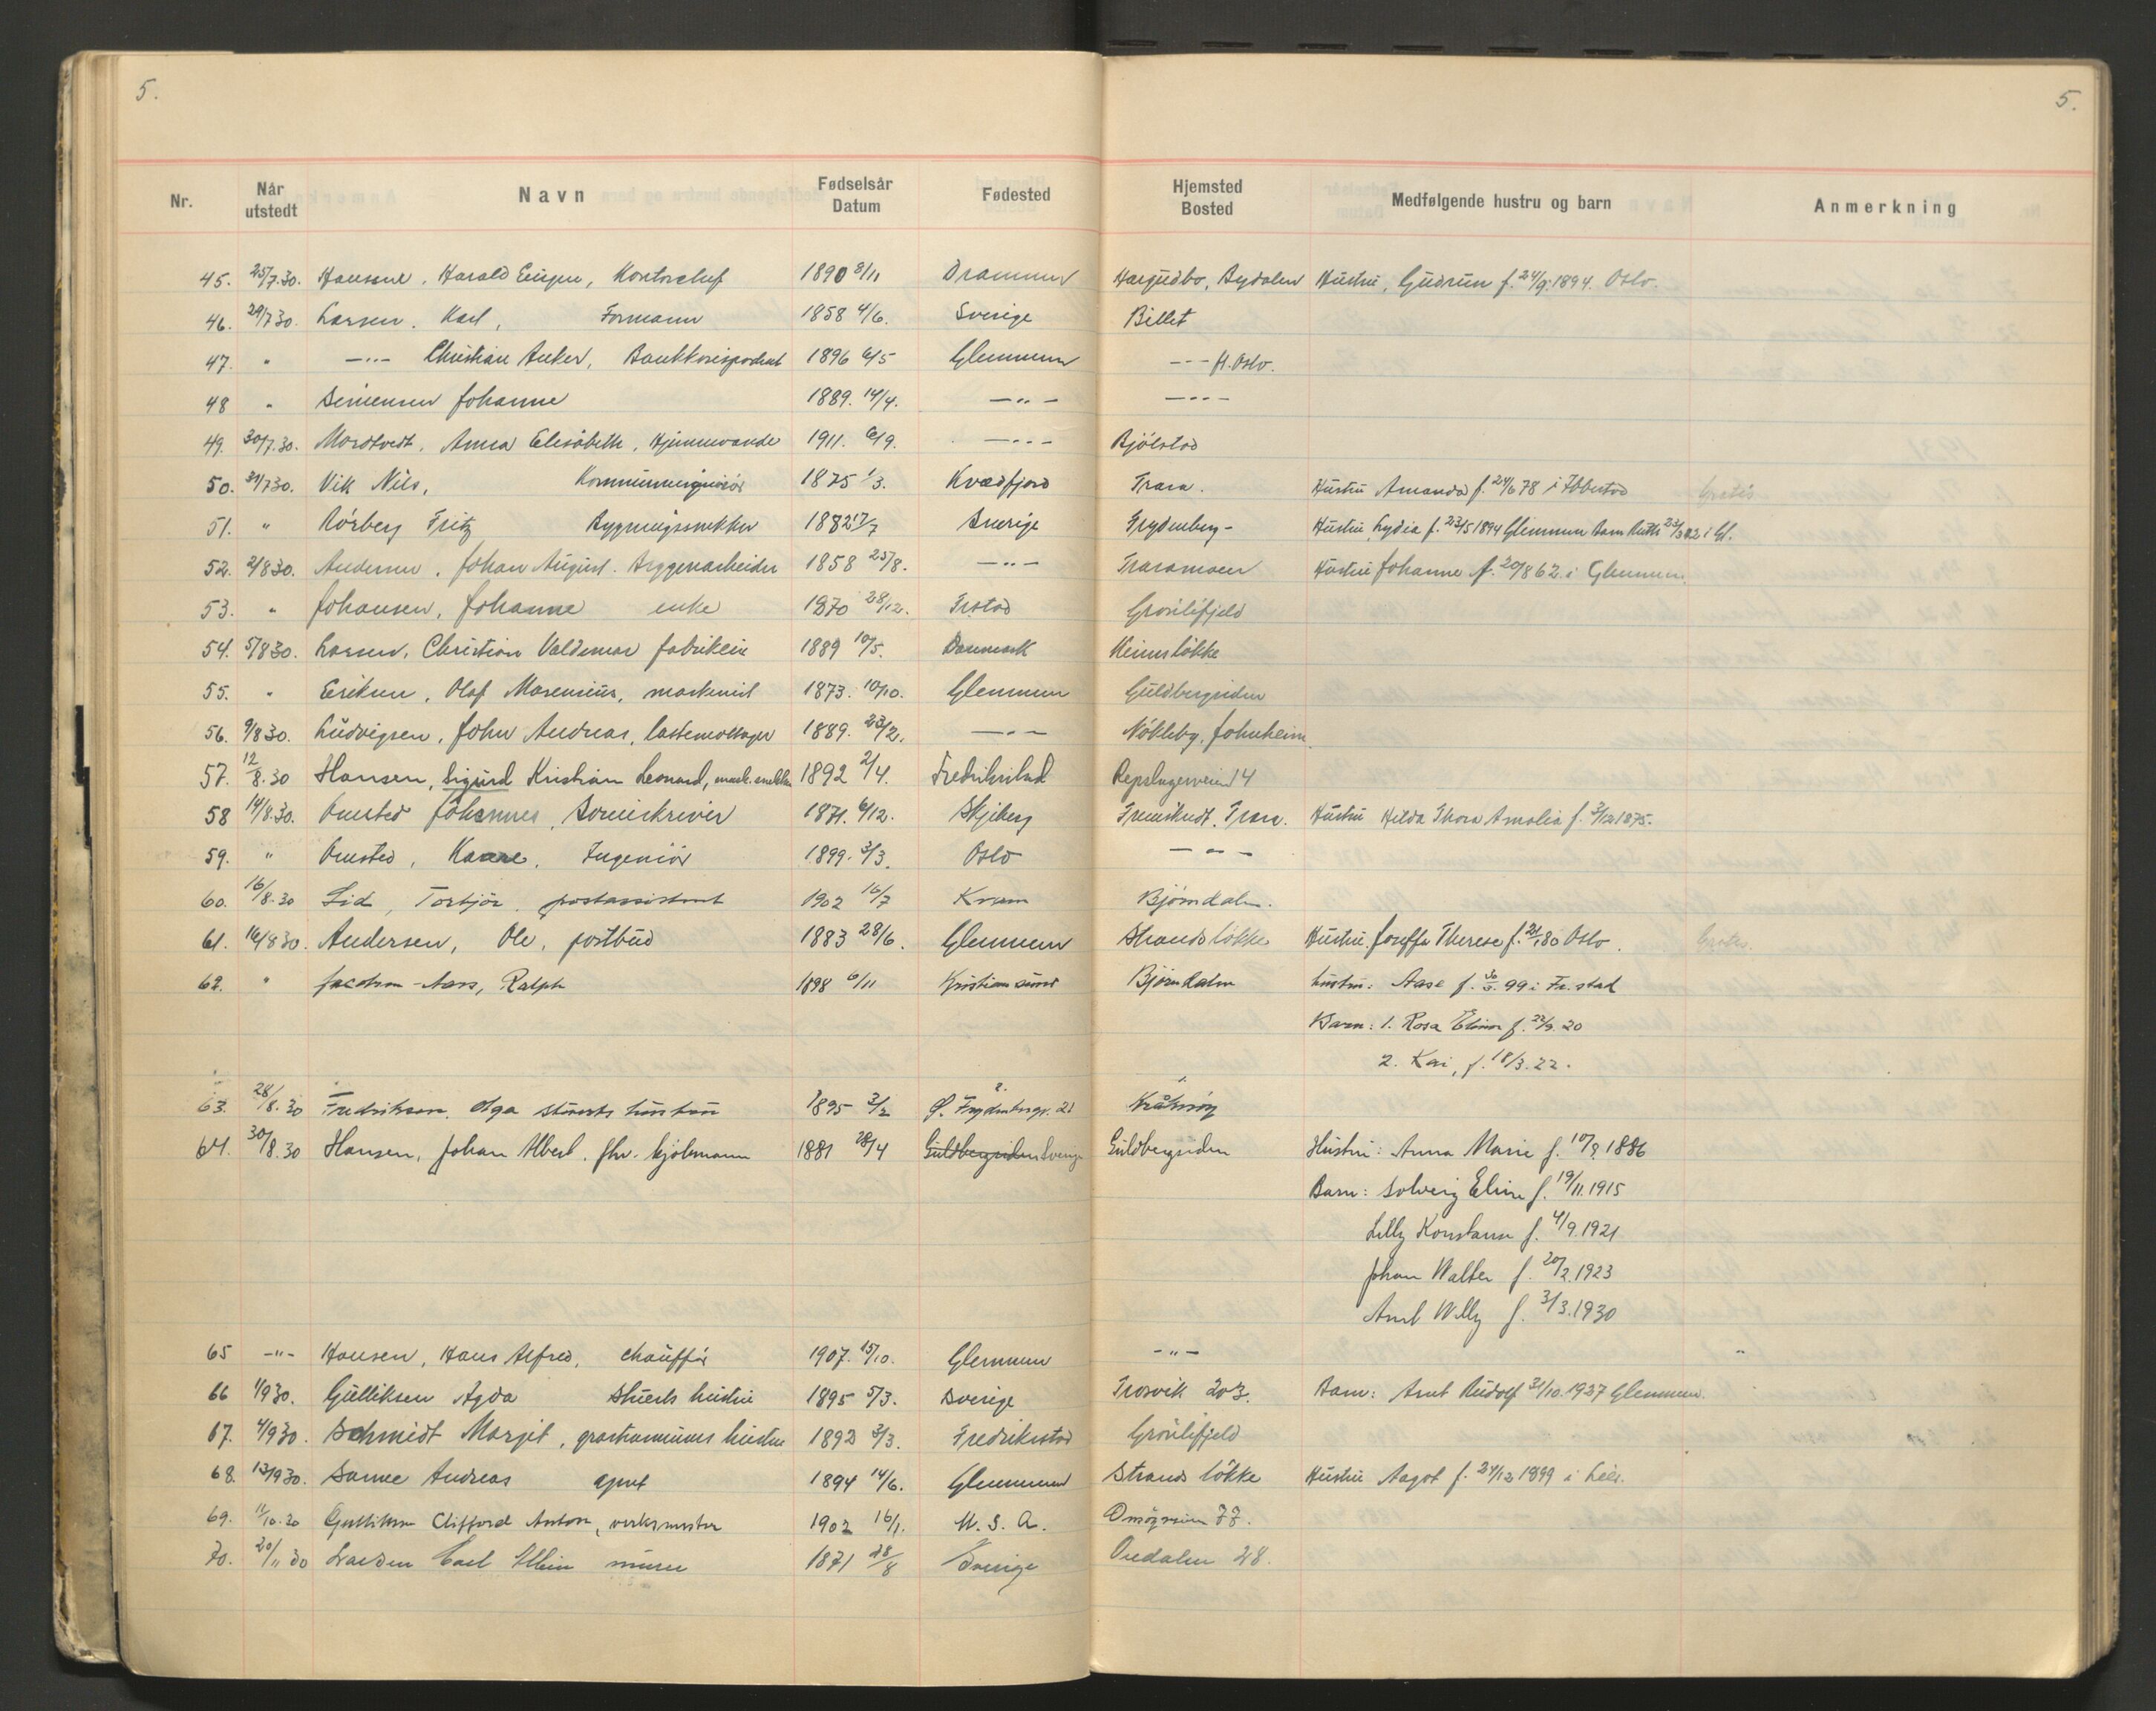 5.
5.
Nr.
Når utstedt
Navn
Fødselsår Datum
Fødested
Hjemsted Bosted
Medfølgende hustru og barn
Anmerkning
45. 25/7.30. Harald Eugen, Kontorchef 1890 8/11 Drammen Hustru, Gudrun f. 24/9.1894. Oslo.
46. 29/7.30. Larsen. Karl, Formann 1858 4/6. Sverige Billet
47. " —"— Christian Anker, 1896 6/5 Glemmen —"— Oslo.
48 " Johanne 1889. 14/4. —"— —"—
49. 30/7.30. Anna Elisabeth, 1911. 6/9. —"— Bjölstad
50. 31/7.30. Vik Nils, 1875 1/3. Kvædfjord Trara. Hustru Amanda f. 24/6 78 i Ibbestad Gratis
51. " Rörberg Fritz Bygningssnekker 1882 17/7 Sverige Frydenberg Hustru, Lydia f. 23/5 1894 Glemmen Barn Ruth i Gl.
52. 2/8 30. Andersen, Johan August. Bryggeriarbeider 1858 25/8. —"— Traramoen Hustru Johanne f. 20/8 62 i Glemmen.
53. " Johansen, Johanne enke 1870 28/12. Grönlifjeld
54. 5/8 30. Larsen, Christian Valdemar 1889 10/5. Danmark
55. " Eriksen, Olaf Marenius, maskinist 1873. 10/10. Glemmen Guldbergsiden
56. 9/8 30. Ludvigsen, John Andreas, lastemottager 1889. 23/2. —"— Nökleby, Johnheim.
57. 12/8.30 Hansen, Sigurd Kristian Leonard, 1892 2/4. Fredrikstad Repslagerveien 14
58 14/8.30. Omsted Johannes, Sorenskriver 1871. 6/12. Skjeberg Trara. Hustru Hilda Thora Amalia f. 3/12 1875.
59. " Omsted, Kaare, Ingeniör 1899. 3/3. Oslo —"—
60. 16/8.30 Lid, postassistent 1902 16/7 Kvam Björndalen.
61. 16/8 30. Andersen, Ole, postbud 1883 28/6. Glemmen Strands lökke Hustru. Joseffa Therese f. 80 Oslo. Gratis.
62. " Ralph 1898 6/11 Kristiansund Björndalen hustru: Aase f. 99 i Fr.stad
Barn: 1. Rosa Elinor f. 22/9.20
2. Kai, f. 18/3.22.
63. 28/8.30 Fredriksen, Olga stuerts hustru 1895 3/2 Kråkeröy
64. 30/8.30 Hansen, Johan Albert, fhv. sjömann 1881 28/4 Guldbergsiden Sverige Guldbergsiden Hustru: Anna Marie f. 1886
Barn: Solveig Elin f. 19/11.1915
Lilly Konstanse f. 4/9.1921
Johan Walter f. 20/2.1923
Arnt Willy f. 3/3.1930
65 —"— Hansen, Hans Alfred, chauffør 1907. 15/10. Glemmen —"—
66 1/9 30. Gulliksen Agda Stuerts hustru 1895 5/3. Sverige Trosvik 203. Barn: Arnt Rudolf 31/10.1927 Glemmen.
67. 4/9 30. Schmidt Margit, hustru 1892 3/3. Fredrikstad Grönlifjeld
68. 13/9 30. Sanne Andreas agent 1894 14/6. Glemmen Strands lökke Hustru Aagot f. 24/12 1899 i Lier.
69. 11/10.30 Gulliksen Clifford Anton, verksmester 1902 16/1. U.S.A. 77.
70. 20/11 30 Carl murer 1871 28/8 Sverige Oredalen 28.